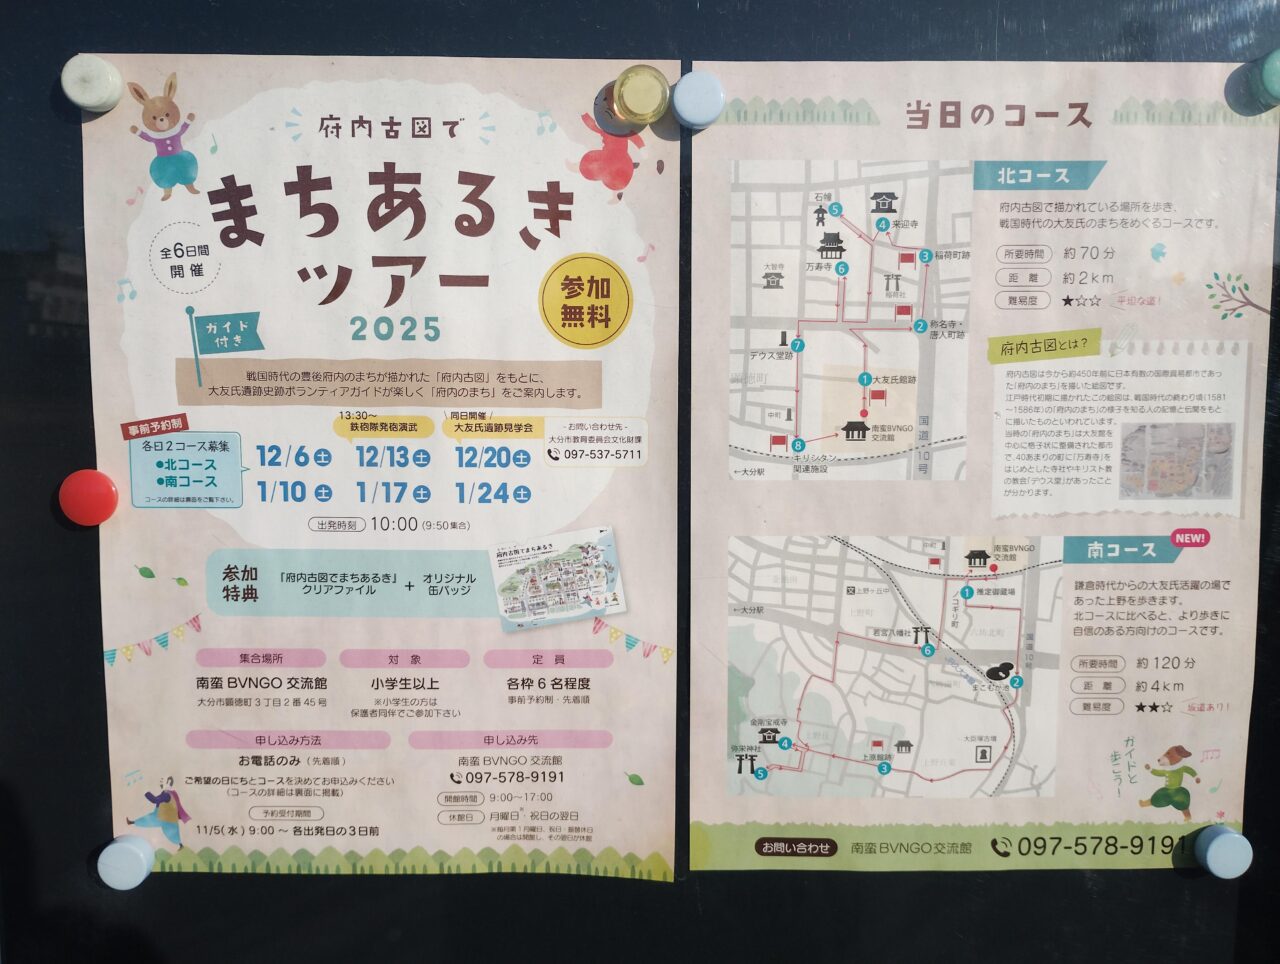 府内古図で
まちあるき
ツアー
2025
全6日間
開催
参加
無料
ガイド
付き
戦国時代の豊後府内のまちが描かれた「府内古図」をもとに、
大友氏遺跡史跡ボランティアガイドが楽しく「府内のまち」をご案内します。
事前予約制
各日2コース募集
●北コース
●南コース
コースの詳細は裏面をご覧下さい。
12/6土
13:30〜
鉄砲隊発砲演武
12/13土
同日開催
大友氏遺跡見学会
12/20土
1/10土
1/17土
1/24土
- お問い合わせ先 -
大分市教育委員会文化財課
097-537-5711
出発時刻 10:00 (9:50集合)
参加
特典
「府内古図でまちあるき」
クリアファイル
+
オリジナル
缶バッジ
府内古図でまちあるき
集合場所
南蛮BVNGO交流館
大分市顕徳町3丁目2番45号
対象
小学生以上
※小学生の方は
保護者同伴でご参加下さい
定員
各枠6名程度
事前予約制・先着順
申し込み方法
お電話のみ(先着順)
ご希望の日にちとコースを決めてお申込みください
(コースの詳細は裏面に掲載)
予約受付期間
11/5(水)9:00〜各出発日の3日前
申し込み先
南蛮BVNGO交流館
097-578-9191
開館時間 9:00〜17:00
休館日 月曜日※・祝日の翌日
※毎月第1月曜日、祝日・振替休日
の場合は開館し、その翌日が休館
当日のコース
石幢
5
4
来迎寺
大智寺
万寿寺
6
3
稲荷町跡
稲荷社
2
称名寺・
唐人町跡
7
デウス堂跡
顕徳町
1
大友氏館跡
中町
南蛮BVNGO
交流館
国道10号
8
キリシタン
関連施設
←大分駅
北コース
府内古図で描かれている場所を歩き、
戦国時代の大友氏のまちをめぐるコースです。
所要時間 約70分
距離 約2km
難易度 ★☆☆ 平坦な道!
府内古図とは?
府内古図は今から約450年前に日本有数の国際貿易都市であっ
た「府内のまち」を描いた絵図です。
江戸時代初期に描かれたこの絵図は、戦国時代の終わり頃(1581
〜1586年)の「府内のまち」の様子を知る人の記憶と伝聞をもと
に描いたものといわれています。
当時の「府内のまち」は大友館を
中心に格子状に整備された都
市で、40あまりの町に「万寿寺」を
はじめとした寺社やキリスト教
の教会「デウス堂」があったこと
が分かります。
中町
南蛮BVNGO
交流館
上野ヶ丘中
←大分駅
上野町
ノコギリ町
1
推定御蔵場
若宮八幡社
6
六坊北町
国道10号
2
まこもが池
金剛宝戒寺
4
上野丘
弥栄神社
5
上原館跡
3
上野丘東
大臣塚古墳
南コース
NEW!
鎌倉時代からの大友氏活躍の場で
あった上野を歩きます。
北コースに比べると、より歩きに
自信のある方向けのコースです。
所要時間 約120分
距離 約4km
難易度 ★★☆ 坂道あり!
ガイドと
歩こう!
お問い合わせ 南蛮BVNGO交流館 097-578-9191